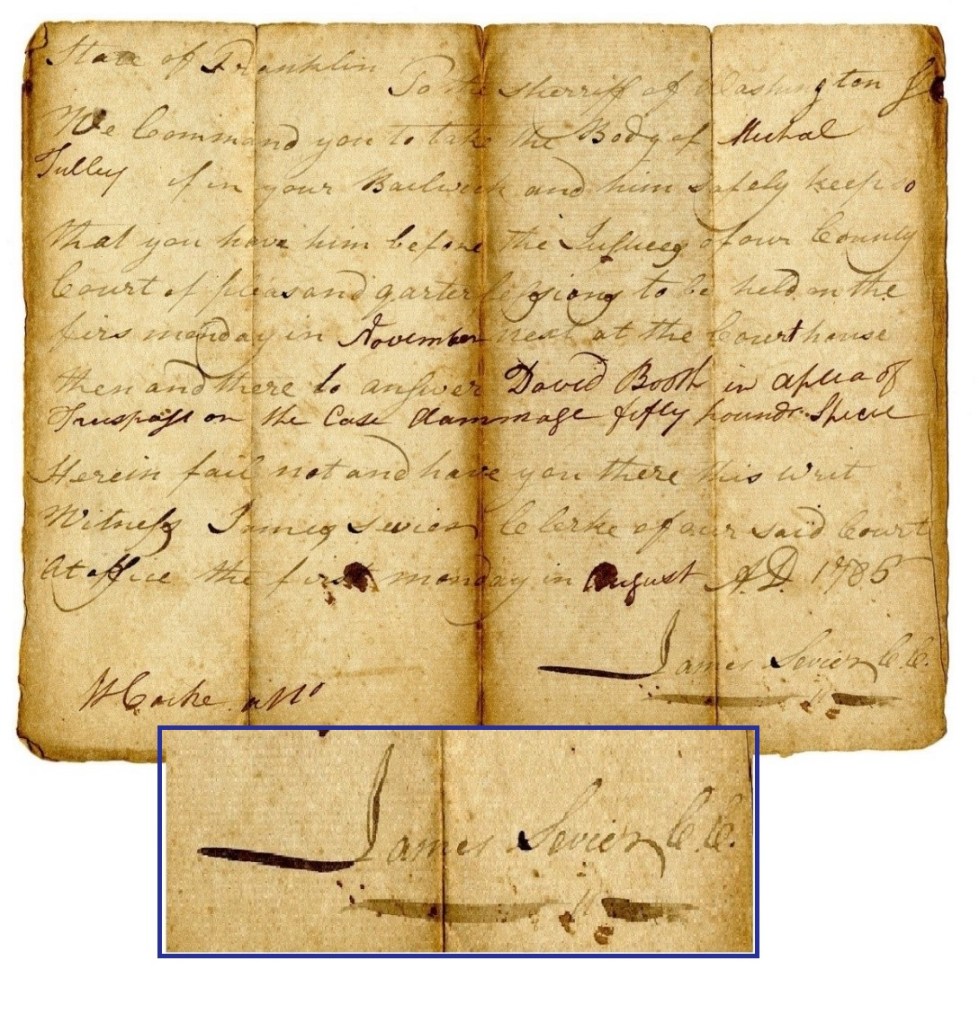 State of Franklin
To the sherriff of Washington
We Command you to take the Body of Michal
Tulley if in your Bailwick and him safely keep so
that you have him before the Jusuces of our County
Court of pleas and qarter sessions to be held on the
firs monday in November next at the Courthouse
then and there to answer David Booth in a plea of
Trespass on the Case dammage fifty pounds Specie
Herein fail not and have you there this writ
Witness James Sevier Clerke of our said Court
At office the first monday in August A.D. 1786
James Sevier C.C.
W Cocke atto
James Sevier C.C.